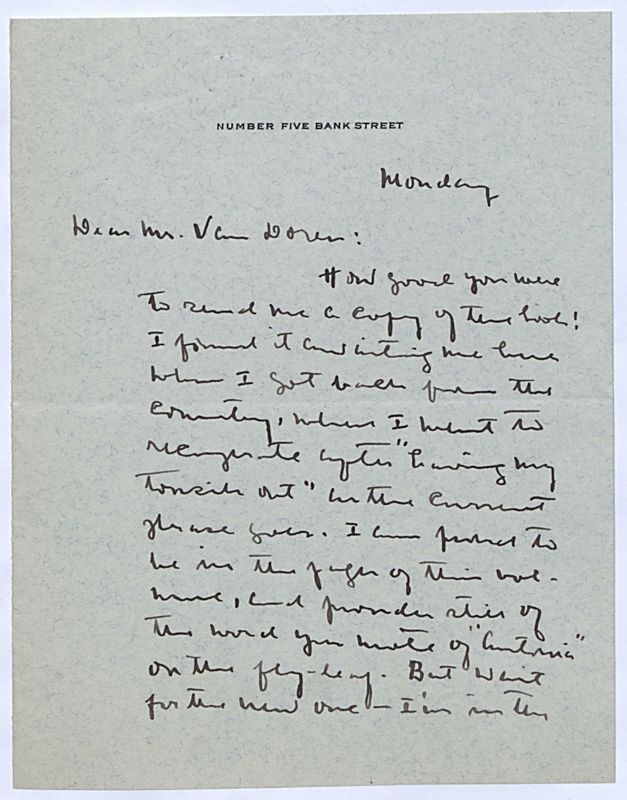 NUMBER FIVE BANK STREET
Monday
Dear Mr. Van Doren:
How good you were
to send me a copy of the book!
I found it awaiting me here
when I got back from the
country, where I went to
recuperate after "having my
tonsils out" as the current
phrase goes. I am proud to
be in the pages of this vol-
ume, and prouder still of
the word you wrote of "Antonia"
on the fly-leaf. But wait
for the new one — I'm in the